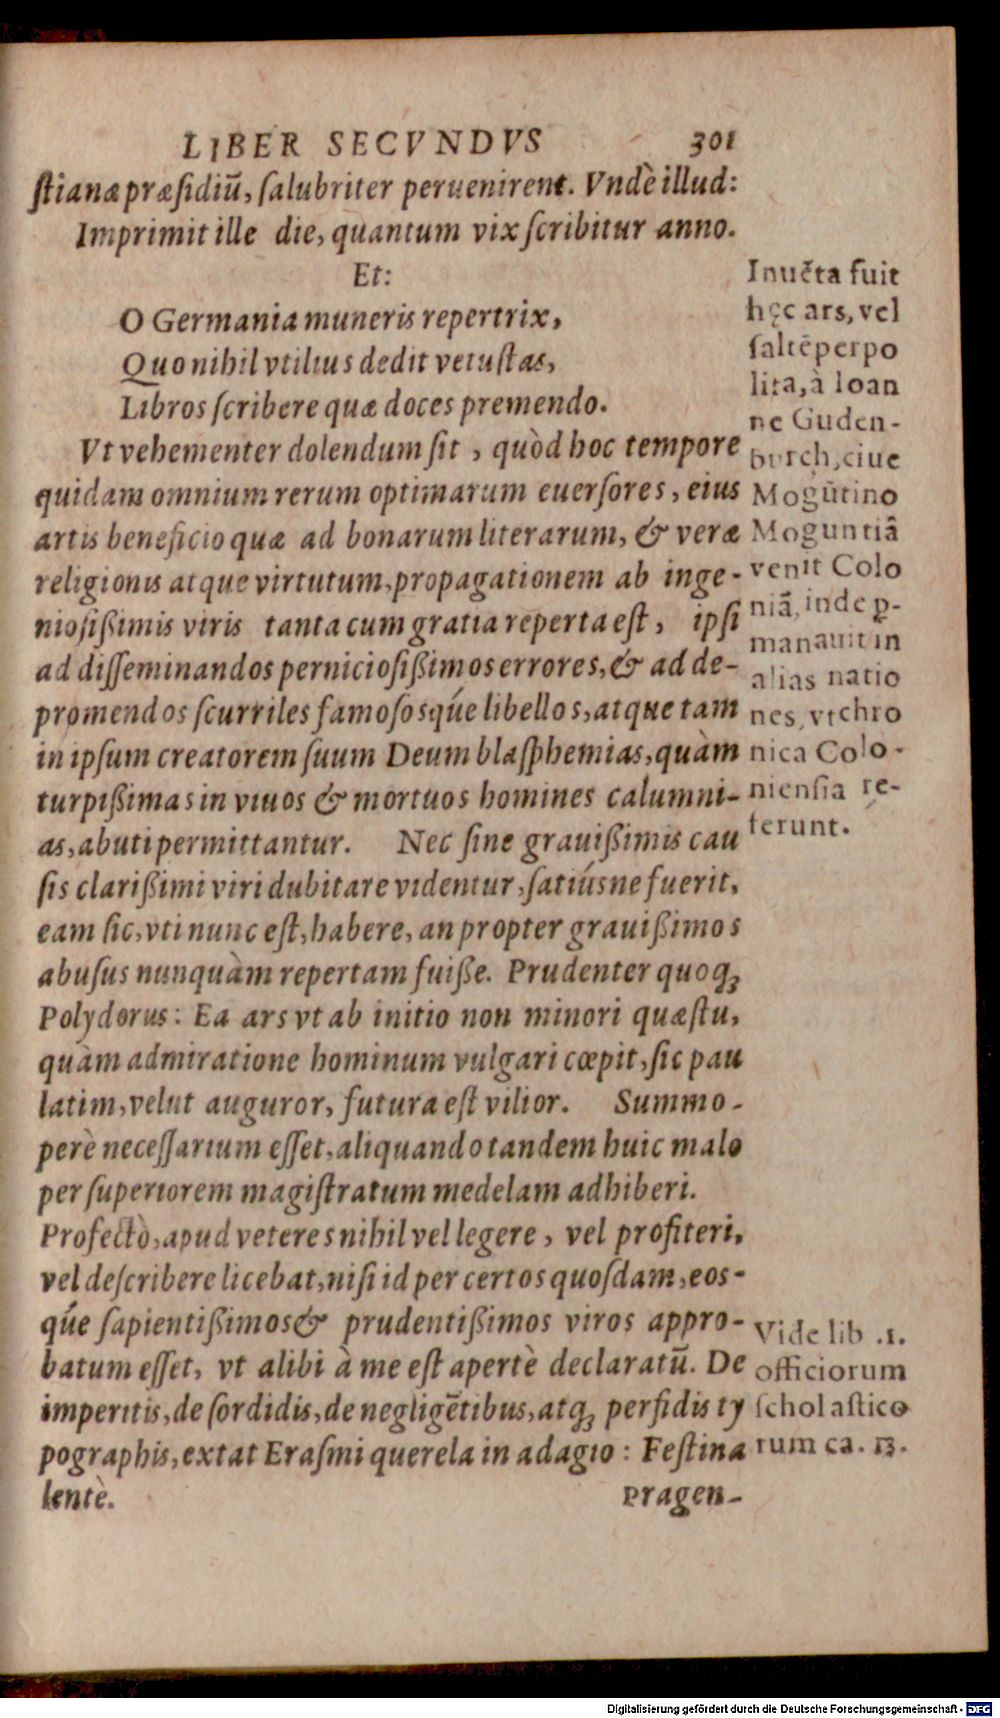 LIBER SECVNDVS 301
ſtianæ præſidiũ, ſalubriter peruenirent. Vndè illud:
Imprimit ille die, quantum vix ſcribitur anno.
Et:
O Germania muneris repertrix,
Quo nihil vtilius dedit vetuſtas,
Libros ſcribere quæ doces premendo.
Vt vehementer dolendum ſit, quòd hoc tempore
quidam omnium rerum optimarum euerſores, eius
artis beneficio quæ ad bonarum literarum, & veræ
religionis atque virtutum, propagationem ab inge-
nioſißimis viris tanta cum gratia reperta eſt, ipſi
ad diſſeminandos pernicioſißimos errores, & ad de-
promendos ſcurriles famoſosq́ue libellos, atque tam
in ipſum creatorem ſuum Deum blaſphemias, quàm
turpißimas in viuos & mortuos homines calumni-
as, abuti permittantur. Nec ſine grauißimis cau
ſis clarißimi viri dubitare videntur, ſatiúsne fuerit,
eam ſic, vti nunc eſt, habere, an propter grauißimos
abuſus nunquàm repertam fuiße. Prudenter quoqꝫ
Polydorus: Ea ars vt ab initio non minori quæſtu,
quàm admiratione hominum vulgari cœpit, ſic pau
latim, velut auguror, futura eſt vilior. Summo-
perè neceſſarium eſſet, aliquando tandem huic malo
per ſuperiorem magiſtratum medelam adhiberi.
Profectò, apud veteres nihil vel legere, vel profiteri,
vel deſcribere licebat, niſi id per certos quoſdam, eos-
q́ue ſapientißimos & prudentißimos viros appro-
batum eſſet, vt alibi à me eſt apertè declaratũ. De
imperitis, de ſordidis, de negligẽtibus, atqꝫ perfidis ty
pographis, extat Eraſmi querela in adagio: Feſtina
lentè.
Pragen-
Inuẽta fuit
hęc ars, vel
ſaltẽ perpo
lita, à Ioan
ne Guden-
burch, ciue
Mogũtino
Moguntiã
venit Colo
niã, inde ꝑ-
manauit in
alias natio
nes, vt chro
nica Colo-
nienſia re-
ferunt.
Vide lib .1.
officiorum
ſcholaſtico
rum ca. 13.
Digitalisierung gefördert durch die Deutsche Forschungsgemeinschaft - DFG